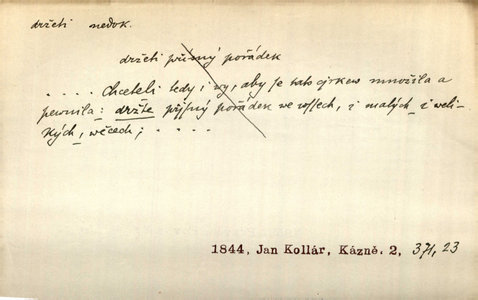 držeti nedok.
držeti přísný pořádek
. . . . Chceteli tedy i wy, aby se tato cjrkew množila a
pewnila: držte přjsný pořádek we wssech, i malých i weli-
kých, wěcech; . . . .
1844, Jan Kollár, Kázně. 2, 371, 23